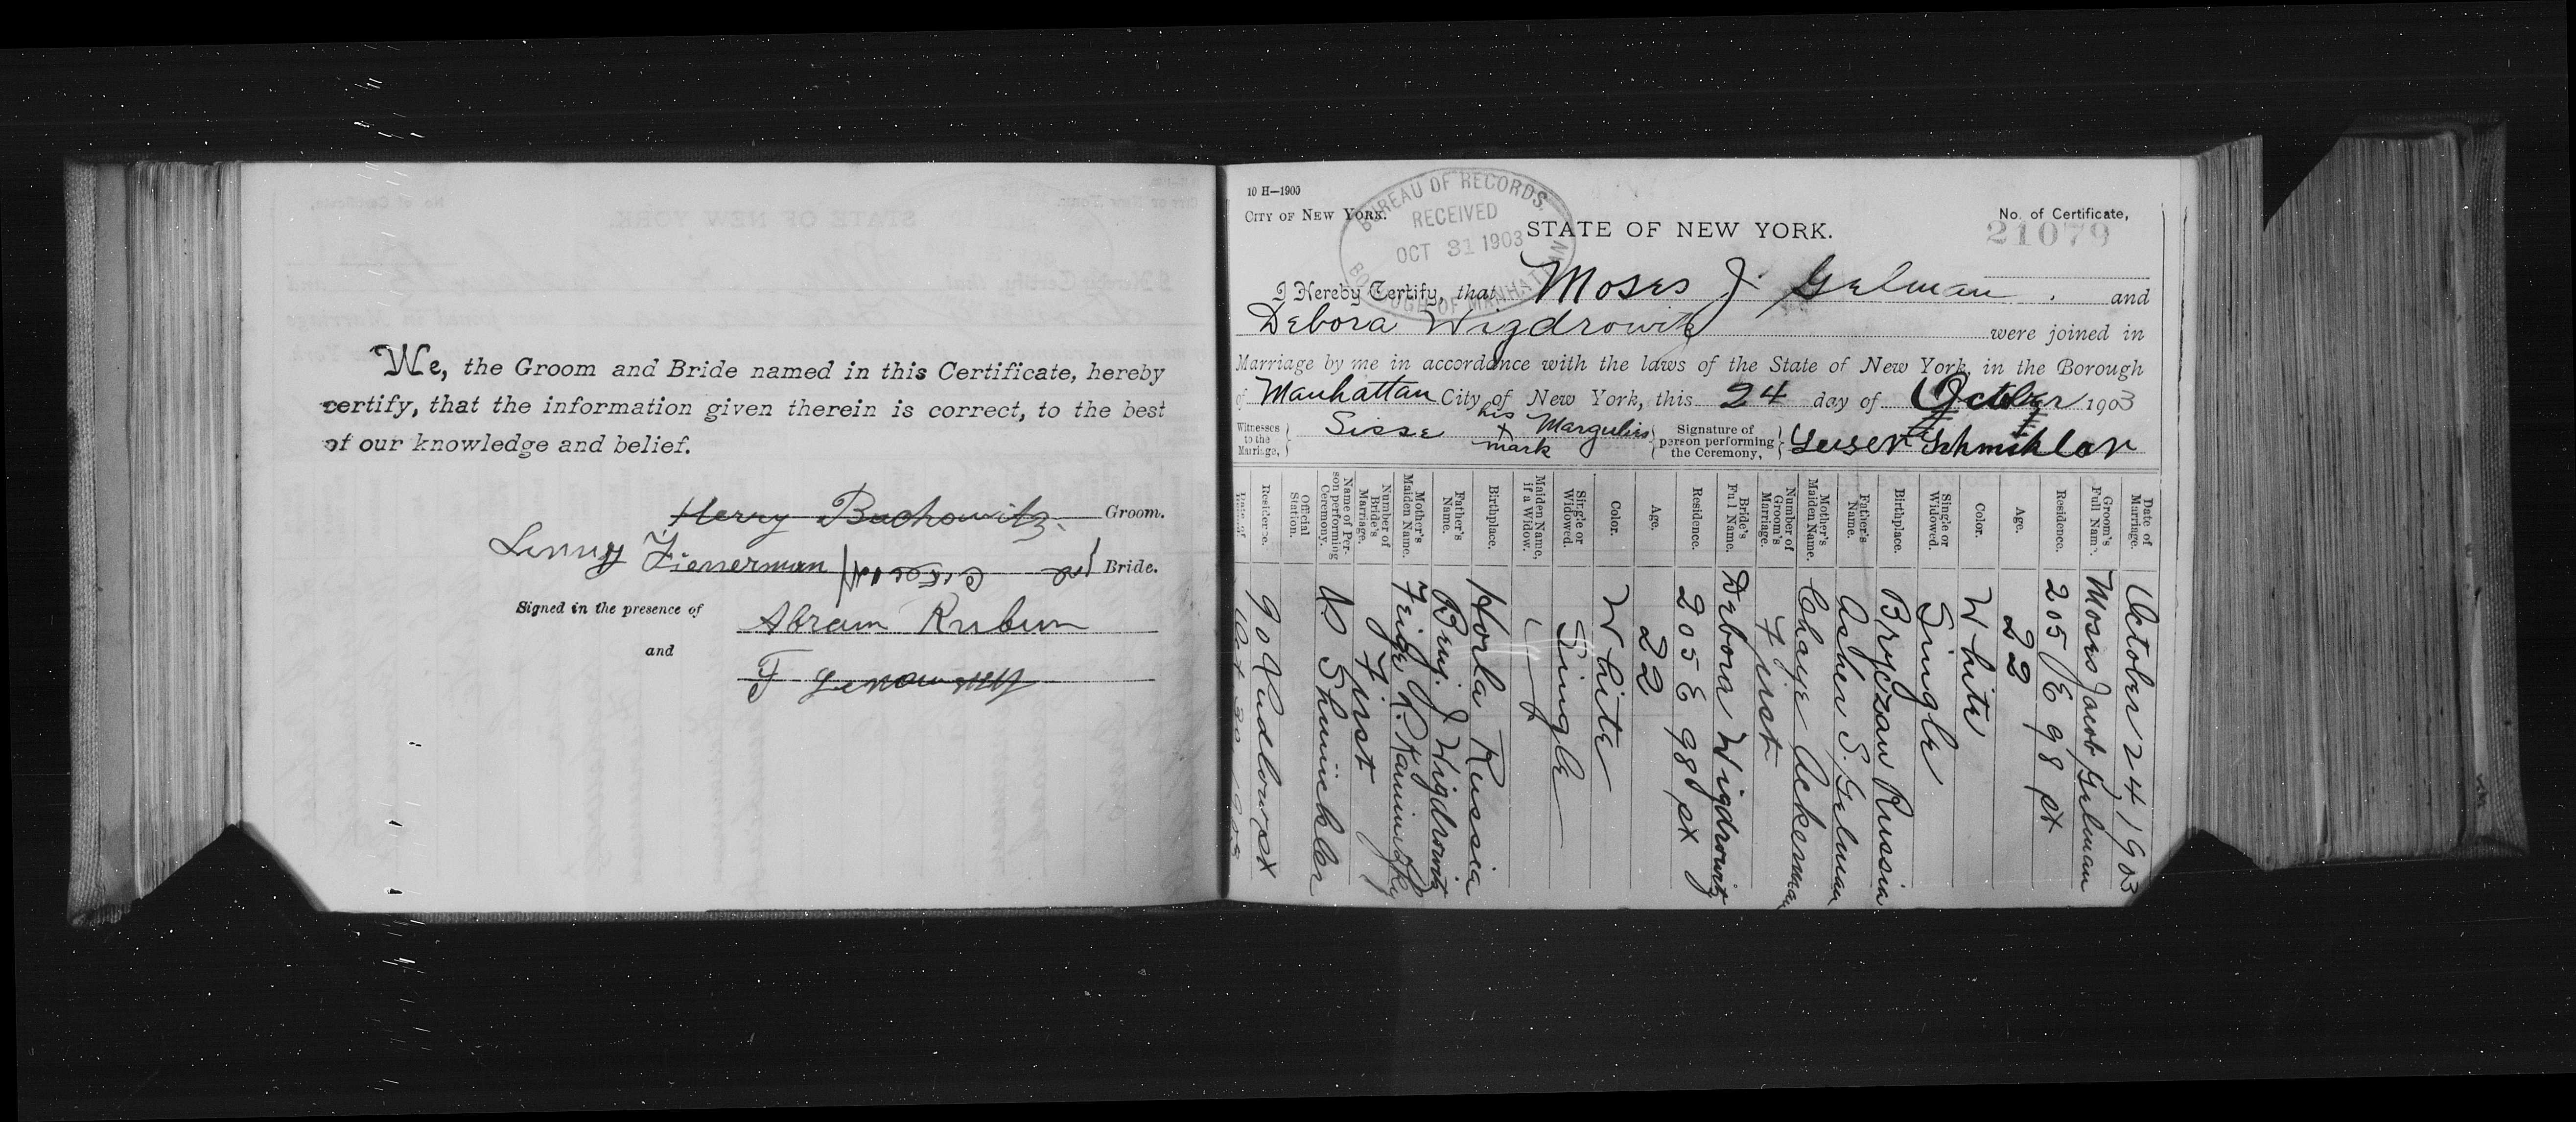 We, the Groom and Bride named in this Certificate, hereby
certify, that the information given therein is correct, to the best
of our knowledge and belief.
Herry Buchowitz Groom.
Lenny Zienerman Bride.
Signed in the presence of Abram Rubin
and
F
10 H—1900
CITY OF NEW YORK.
BUREAU OF RECORDS.
RECEIVED
OCT 31 1903
BOROUGH OF MANHATTAN
STATE OF NEW YORK.
No. of Certificate,
21079
I Hereby Certify, that Moses J. Gelman and
Debora Wigdrowitz were joined in
Marriage by me in accordance with the laws of the State of New York, in the Borough
of Manhattan City of New York, this 24 day of October 1903
Witnesses to the Marriage, Sisse his X mark Margulies Signature of person performing the Ceremony, Leiser Schmikler
Date of Marriage. October 24 1903
Groom's Full Name. Moses Jacob Gelman
Residence. 205 E 98 st
Age. 22
Color. White
Single or Widowed. Single
Birthplace. Bryczan Russia
Father's Name. Asher S. Gelman
Mother's Maiden Name. Chaye Ackerman
Number of Groom's Marriage. First
Bride's Full Name. Debora Wigdrowitz
Residence. 205 E 98 st
Age. 22
Color. White
Single or Widowed. Single
Maiden Name, if a Widow.
Birthplace. Horla Russia
Father's Name. Benj. J Wigdrowitz
Mother's Maiden Name. Feige R. Kaminitzky
Number of Bride's Marriage. First
Name of Person performing Ceremony. Shmickler
Official Station.
Residence. 90 Ludlow st
Date of